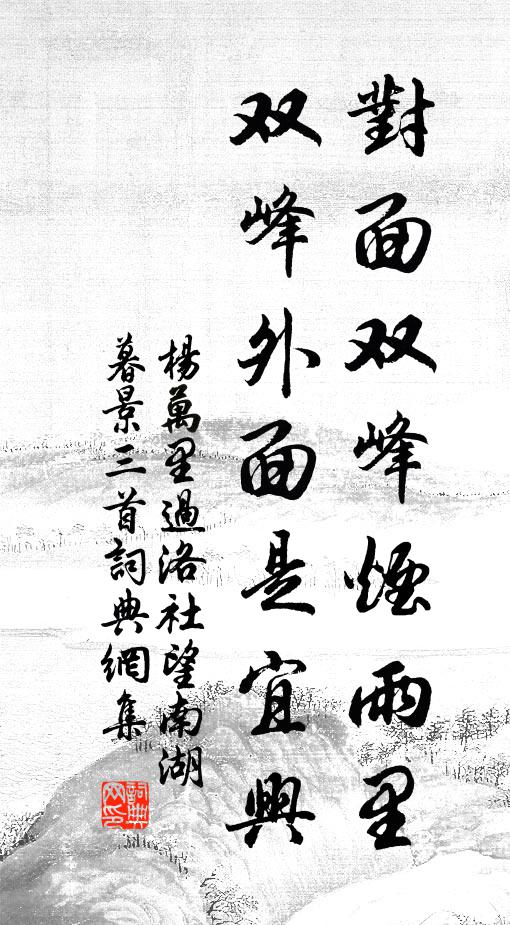 對面双峰煙雨里
双峰外面是宜興
楊萬里過洛社望南湖
暮景三首詞典網集
詞典
网印